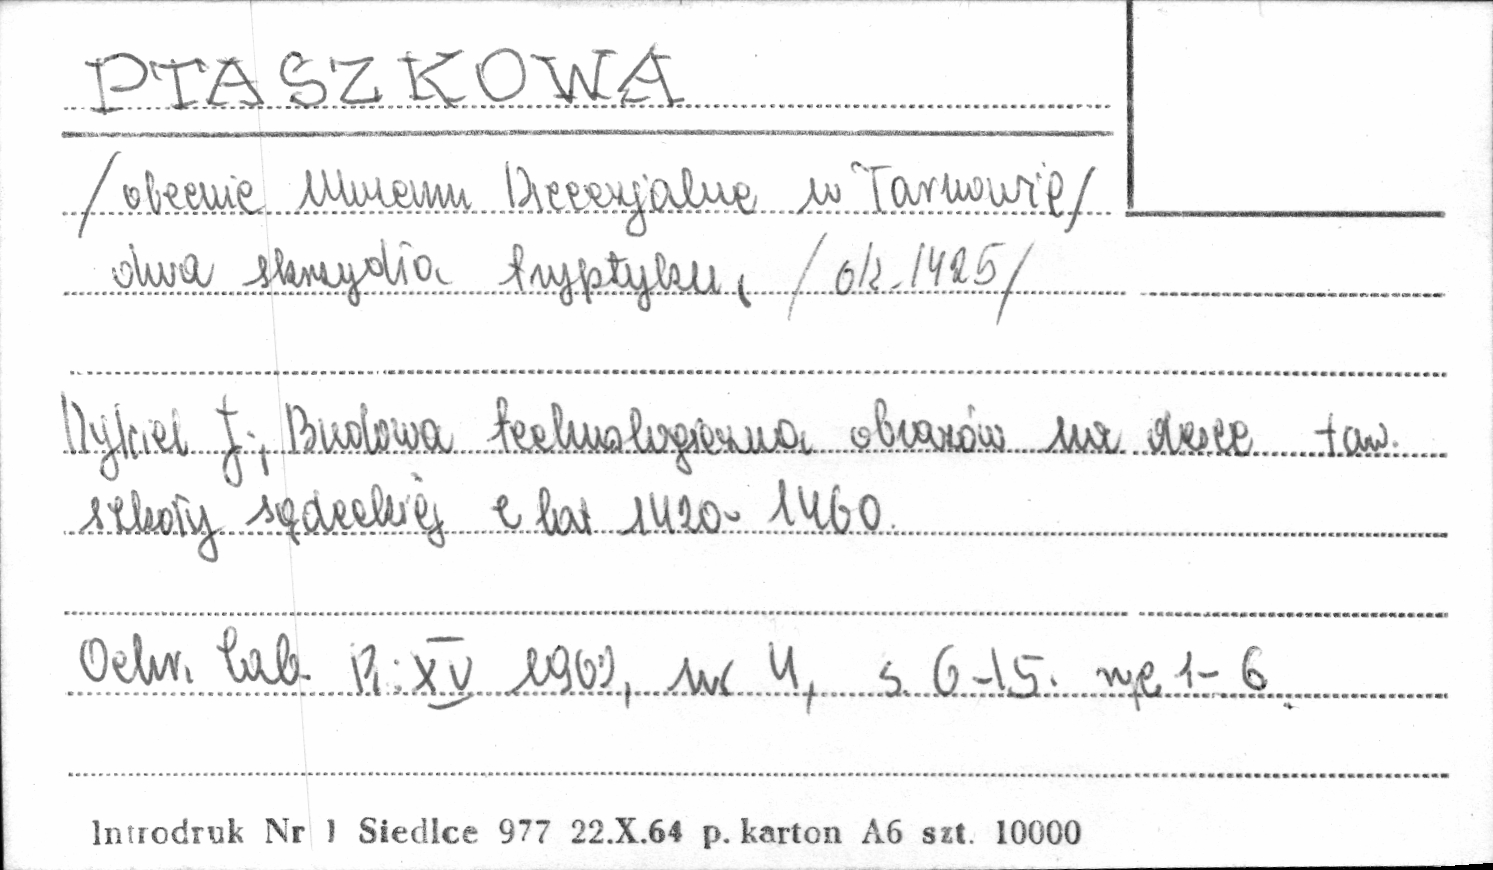 PTASZKOWA
/obecnie Muzeum Diecezjalne w Tarnowie/
dwa skrzydła tryptyku, /ok. 1425/
Dyląg J., Budowa technologiczna obrazów na desce tzw.
szkoły sądeckiej z lat 1420-1460.
Ochr. Zab. R. XV 1962, nr 4, s. 6-15. ryc 1-6.
Introdruk Nr 1 Siedlce 977 22.X.64 p. karton A6 szt. 10000